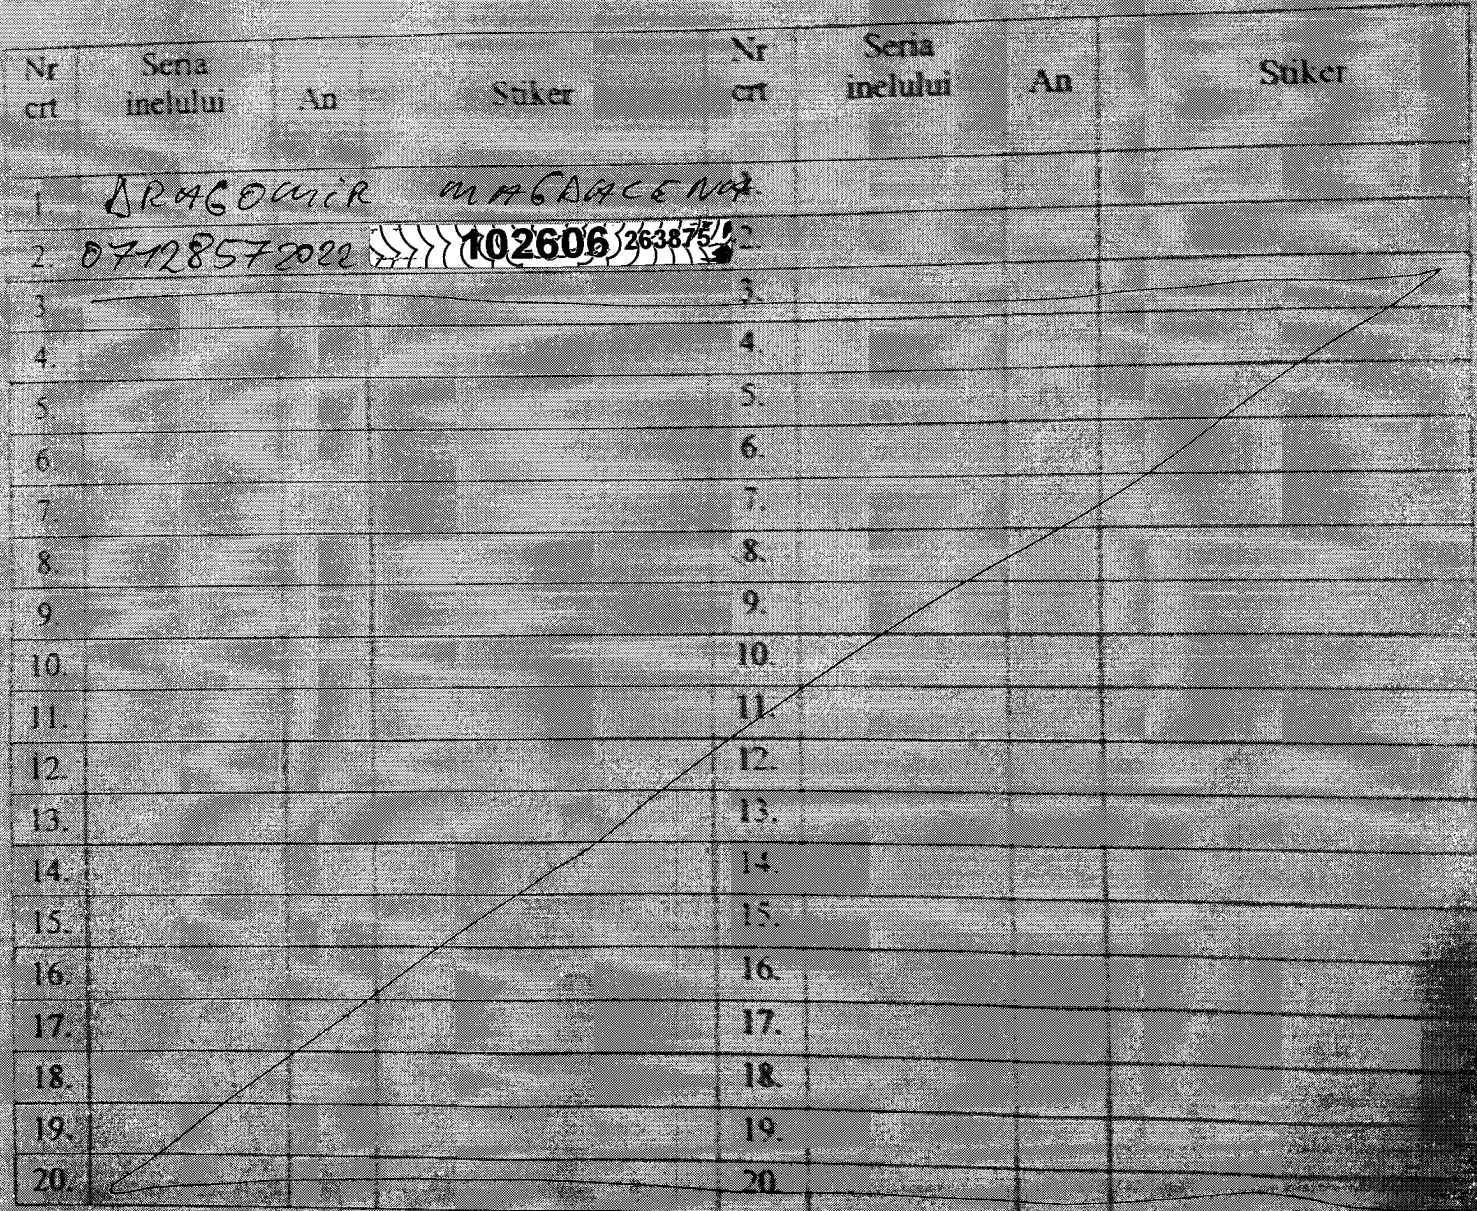 Nr crt Seria inelului An Stiker Nr crt Seria inelului An Stiker
1. DRAGOMIR MAGDALENA 1.
2. 0712857 2022 102606 263875 2.
3 3.
4. 4.
5. 5.
6 6.
7. 7.
8. 8.
9. 9.
10. 10.
11. 11.
12. 12.
13. 13.
14. 14.
15. 15.
16. 16.
17. 17.
18. 18.
19. 19.
20. 20